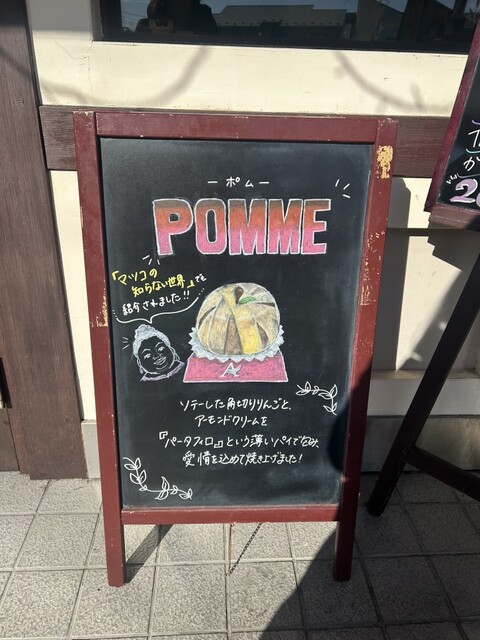 ーポムー
POMME
「マツコの
知らない世界」でも
紹介されました!!
ソテーした角切りりんごと、
アーモンドクリームを
『パータフィロ』という薄いパイで包み、
愛情を込めて焼き上げました!